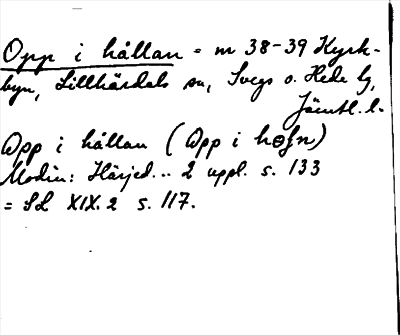 Opp i hållan = m 38-39 Kyrk-
byn, Lillhärdals sn, Svegs o. Hede tg,
Jämtl. l.
Opp i hållan (Opp i hɵʃn)
Modin: Härjed... 2 uppl. s. 133
= SL XIX. 2 s. 117.